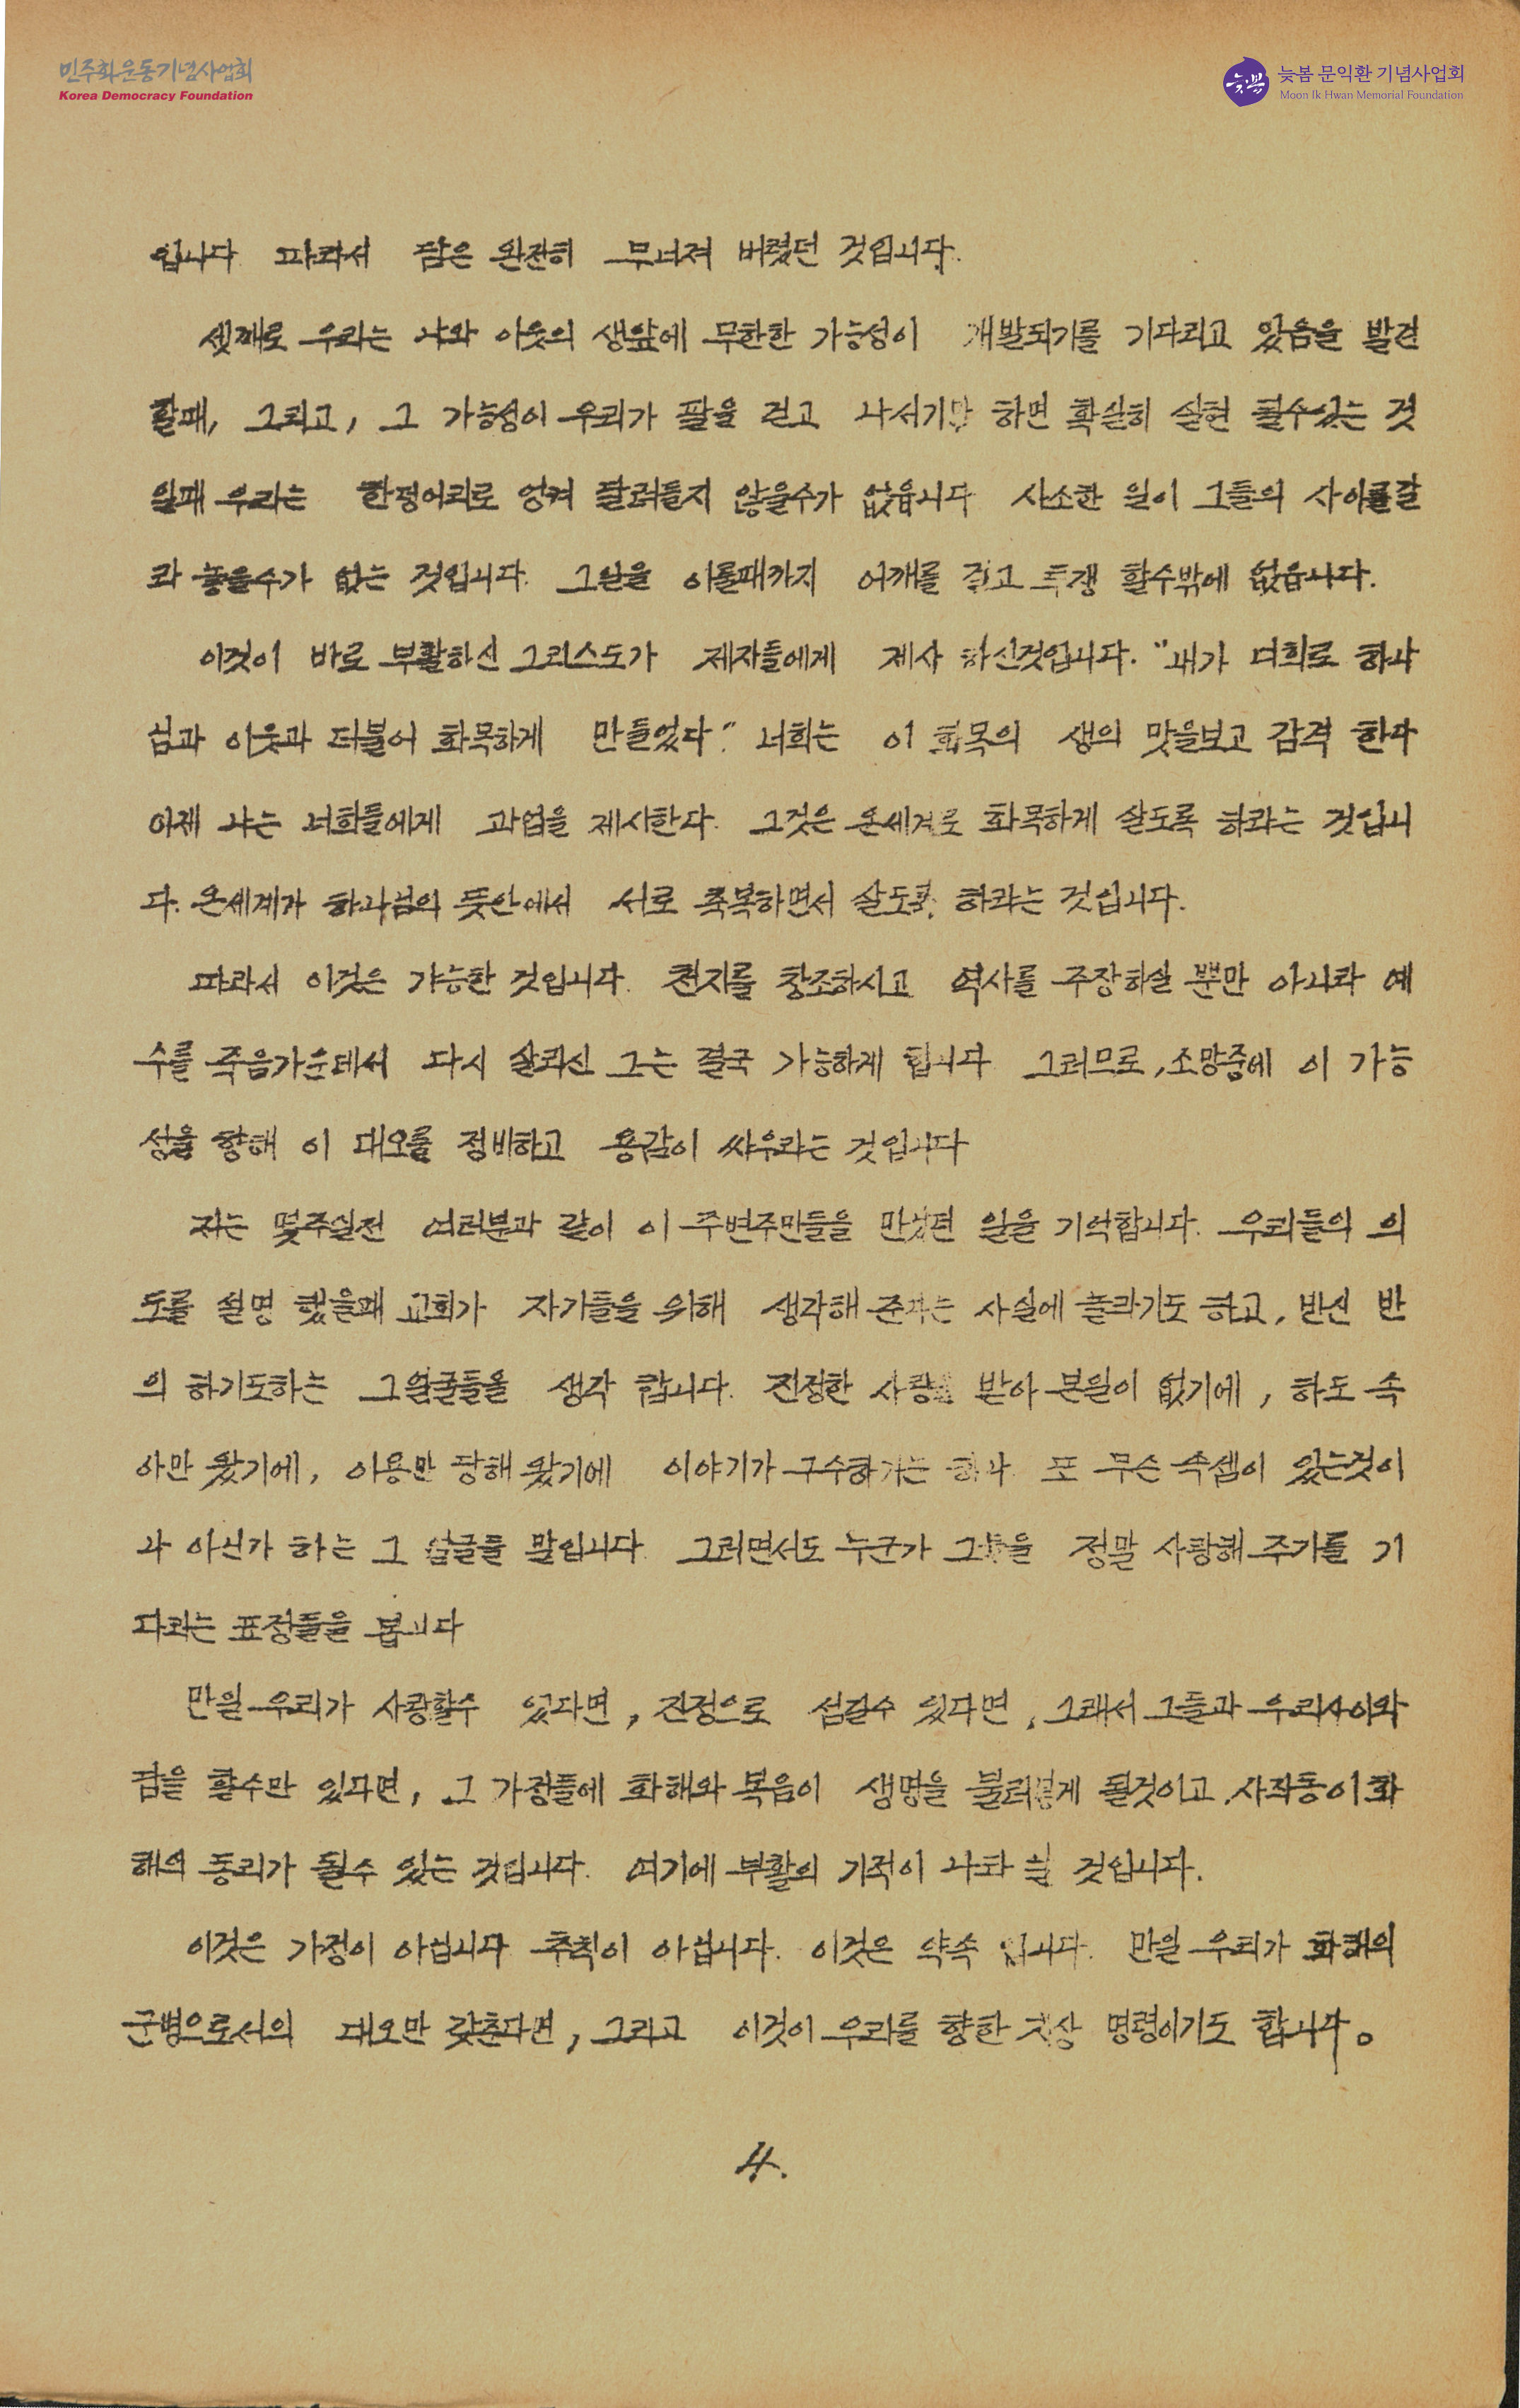 민주화운동기념사업회
Korea Democracy Foundation
늦봄
늦봄 문익환 기념사업회
Moon Ik Hwan Memorial Foundation
입니다 따라서 담은 완전히 무너져 버렸던 것입니다.
셋째로 우리는 나와 이웃의 생앞에 무한한 가능성이 개발되기를 기다리고 있음을 발견
할때, 그리고, 그 가능성이 우리가 팔을 걷고 나서기만 하면 확실히 실현 될수있는 것
일때 우리는 한덩어리로 엉켜 달려들지 않을수가 없읍니다 사소한 일이 그들의 사이를갈
라 놓을수가 없는 것입니다. 그일을 이룰때까지 어깨를 걷고 투쟁 할수밖에 없읍니다.
이것이 바로 부활하신 그리스도가 제자들에게 제시 하신것입니다. "내가 너희로 하나
님과 이웃과 더불어 화목하게 만들었다" 너희는 이 화목의 생의 맛을보고 감격 한다
이제 나는 너희들에게 과업을 제시한다. 그것은 온세계로 화목하게 살도록 하라는 것입니
다. 온세계가 하나님의 뜻안에서 서로 축복하면서 살도록 하라는 것입니다.
따라서 이것은 가능한 것입니다. 천지를 창조하시고 역사를 주장하실 뿐만 아니라 예
수를 죽음가운데서 다시 살리신 그는 결국 가능하게 합니다 그러므로, 소망중에 이 가능
성을 향해 이 대오를 정비하고 용감이 싸우라는 것입니다
저는 몇주일전 여러분과 같이 이 주변주민들을 만났던 일을 기억합니다. 우리들의 의
도를 설명 했을때 교회가 자기들을 위해 생각해 준다는 사실에 놀라기도 하고, 반신 반
의 하기도하는 그얼굴들을 생각 합니다. 진정한 사랑을 받아 본일이 없기에, 하도 속
아만 왔기에, 이용만 당해 왔기에 이야기가 구수하기는 하나 또 무슨 속셈이 있는것이
나 아닌가 하는 그 얼굴들 말입니다. 그러면서도 누군가 그들을 정말 사랑해 주기를 기
다리는 표정들을 봅니다
만일 우리가 사랑할수 있다면, 진정으로 섬길수 있다면, 그래서 그들과 우리사이와
점을 할수만 있다면, 그 가정들에 화해와 복음이 생명을 불러넣게 될것이고, 사직동이 화
해의 동리가 될수 있는 것입니다. 여기에 부활의 기적이 나타 날 것입니다.
이것은 가정이 아닙니다 추측이 아닙니다. 이것은 약속 입니다. 만일 우리가 화해의
군병으로서의 대오만 갖춘다면, 그리고 이것이 우리를 향한 지상 명령이기도 합니다.
4.